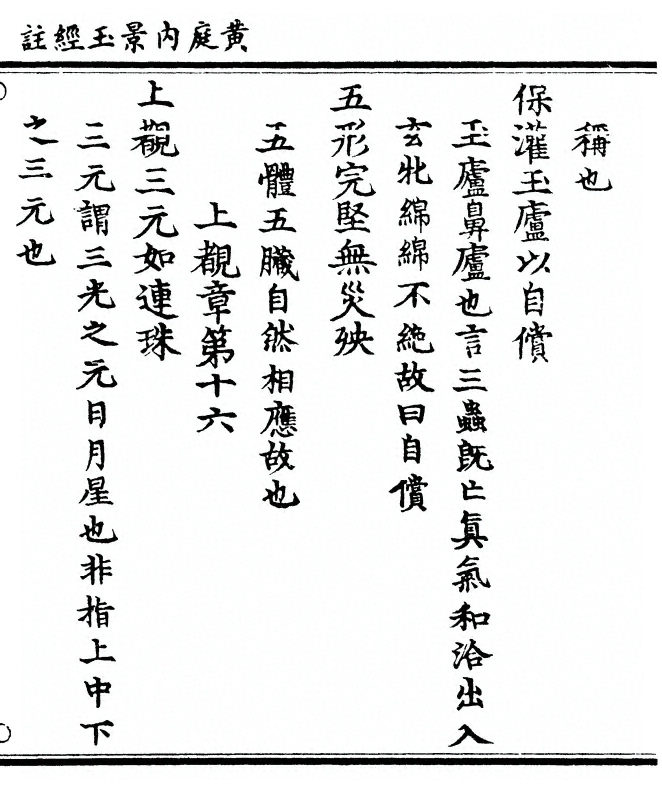 黃庭內景玉經註
稱也
保灌玉廬以自償
玉廬鼻廬也言三蟲旣亡眞氣和洽出入
玄牝綿綿不絶故曰自償
五形完堅無災殃
五體五臟自然相應故也
上覩章第十六
上觀三元如連珠
三元謂三光之元日月星也非指上中下
之三元也